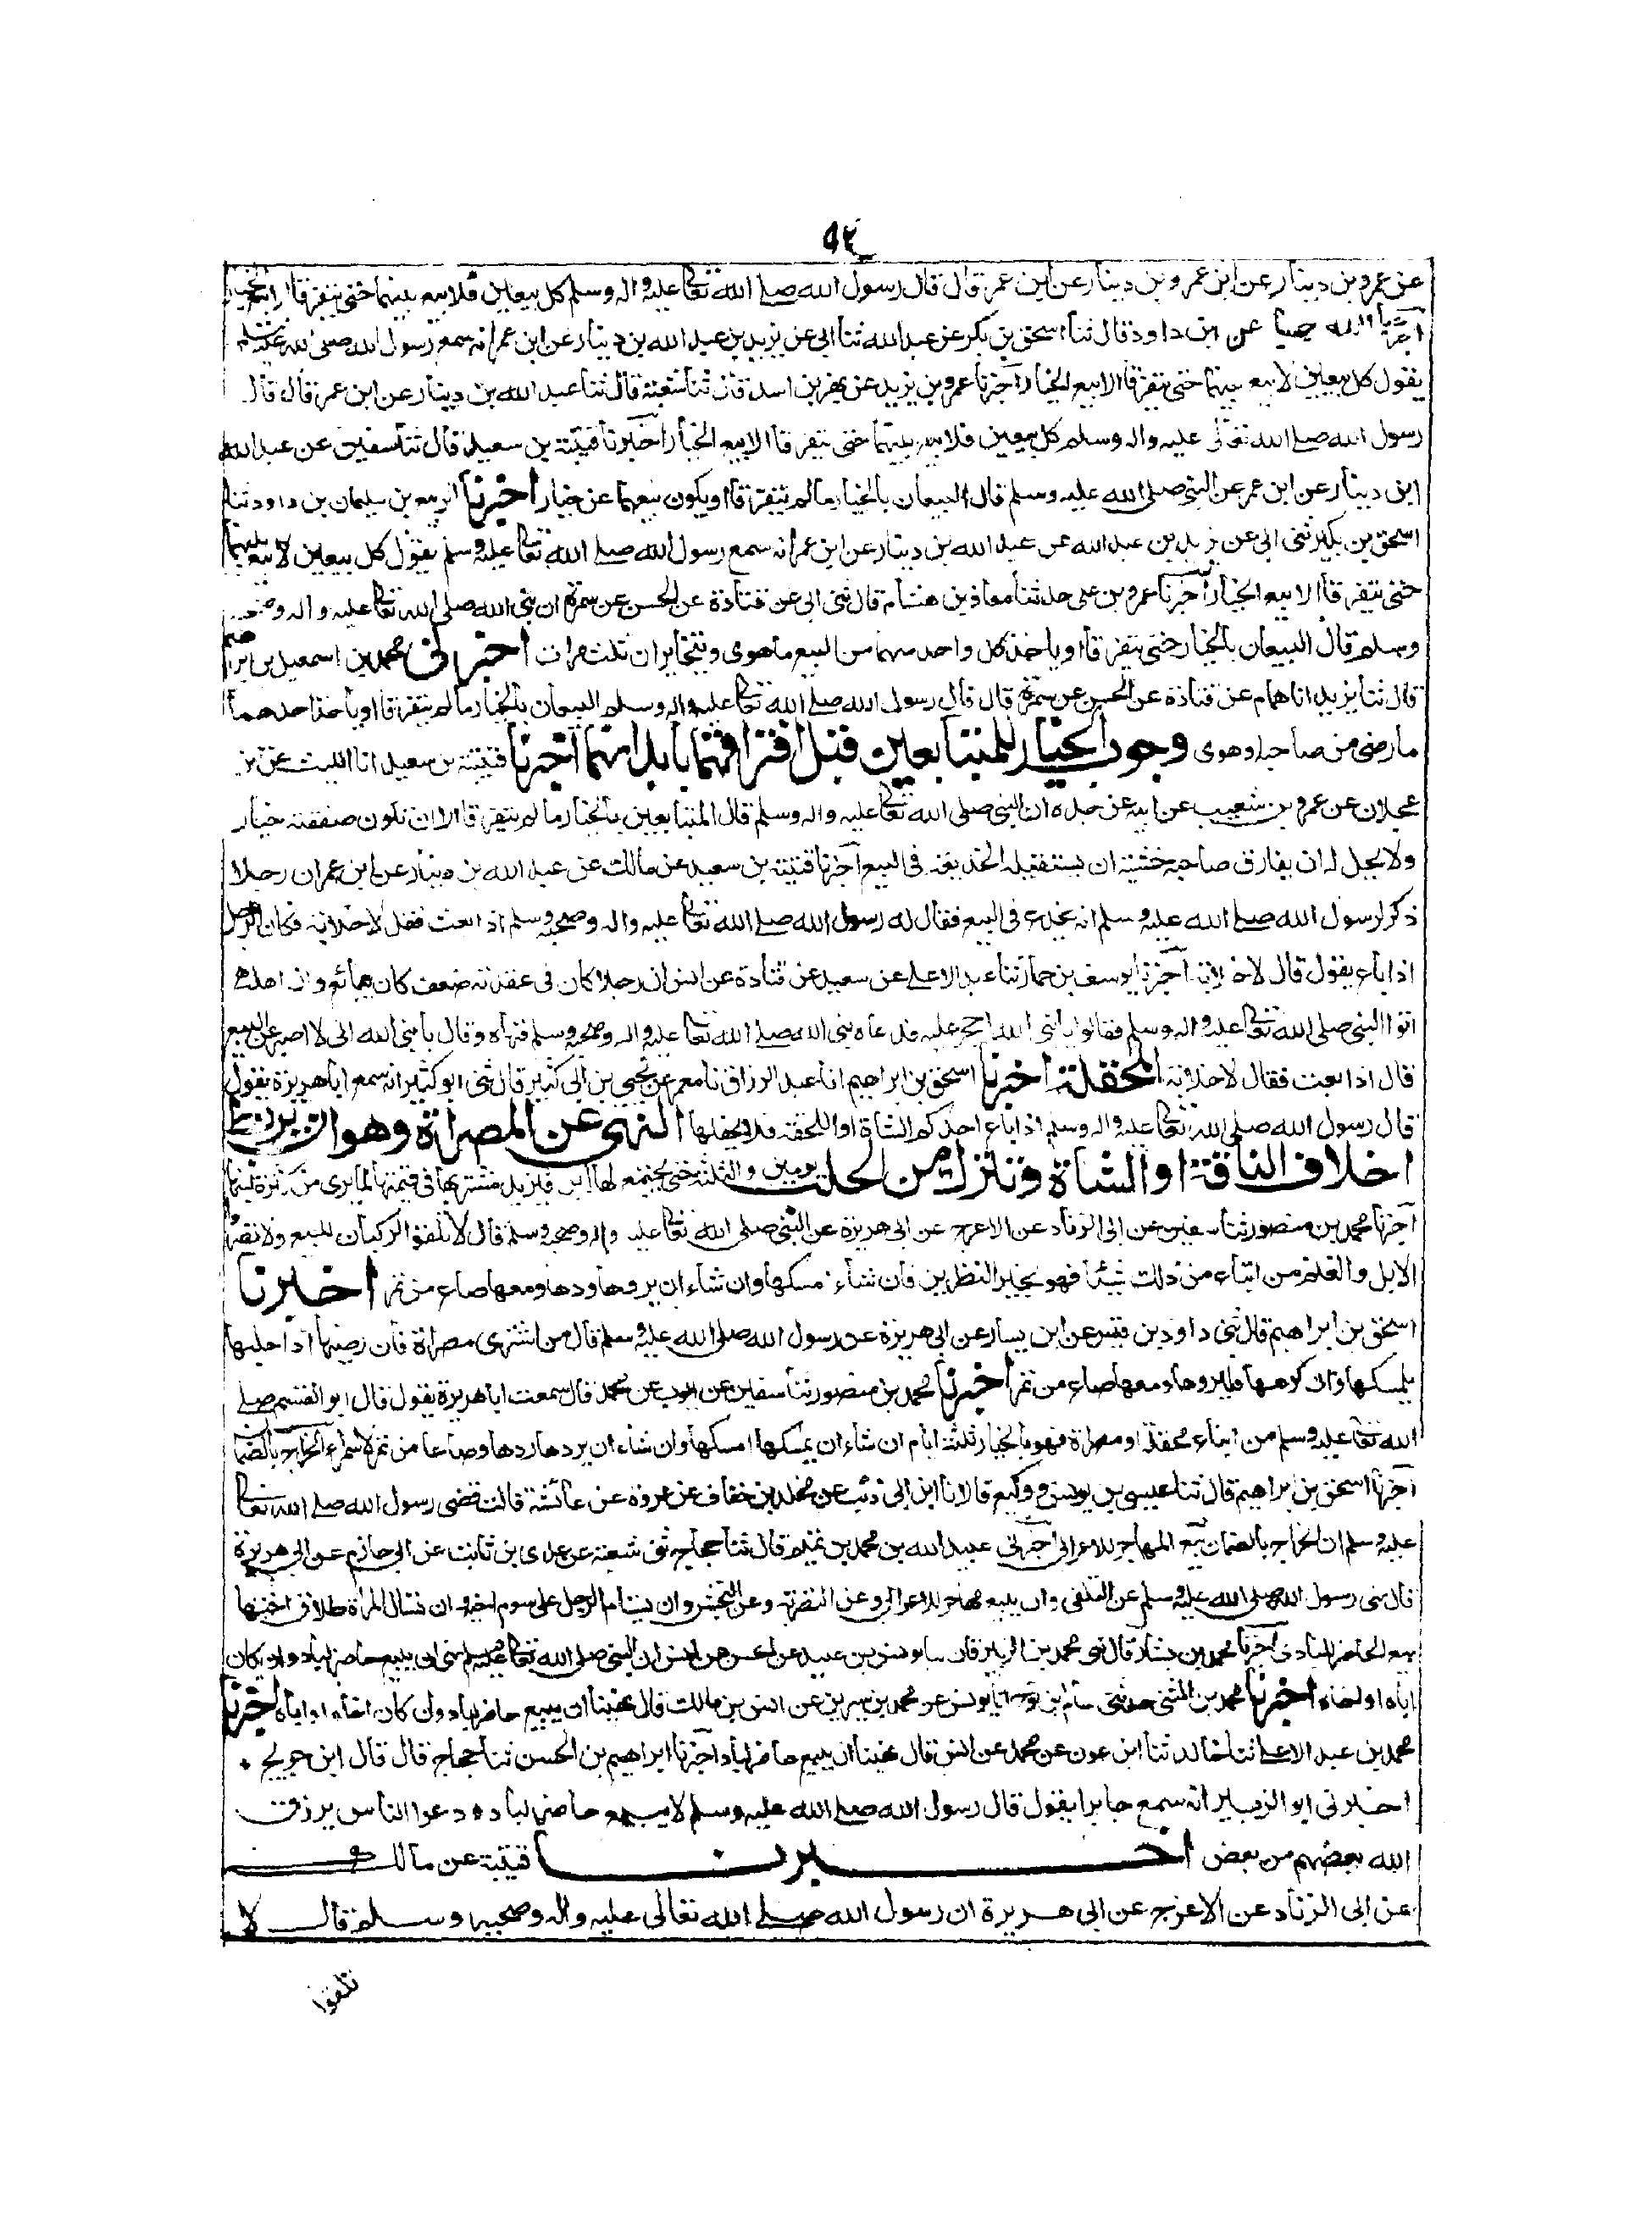 ٩٢
عن عمرو بن دينار عن ابن عمرو بن دينار عن ابن عمر قال قال رسول الله صلى الله تعالى عليه واله وسلم كل بيعين فلا بيع بينهما حتى يتفرقا الا بيع الخيار
عن ابن داود قال ثنا اسحق بن بكر عن عبد الله ثنا ابى عن يزيد بن عبد الله بن دينار عن ابن عمر انه سمع رسول الله صلى الله عليه وسلم
يقول كل بيعين لا بيع بينهما حتى يتفرقا الا بيع الخيار اخبرنا عمرو بن يزيد عن بهز بن اسد قال ثنا شعبة قال ثنا عبد الله بن دينار عن ابن عمر قال قال
رسول الله صلى الله تعالى عليه واله وسلم كل بيعين فلا بيع بينهما حتى يتفرقا الا بيع الخيار اخبرنا قتيبة بن سعيد قال ثنا سفين عن عبد الله
ابن دينار عن ابن عمر عن النبى صلى الله عليه وسلم قال البيعان بالخيار ما لم يتفرقا او يكون بيعهما عن خيار اخبرنا الربيع بن سليمان بن داود ثنا
اسحق بن بكير ثنى ابى عن يزيد بن عبد الله عن عبد الله بن دينار عن ابن عمر انه سمع رسول الله صلى الله تعالى عليه وسلم يقول كل بيعين لا بيع بينهما
حتى يتفرقا الا بيع الخيار اخبرنا عمرو بن على حدثنا معاذ بن هشام قال ثنى ابى عن قتادة عن الحسن عن سمرة ان نبى الله صلى الله تعالى عليه واله وصحبه
وسلم قال البيعان بالخيار حتى يتفرقا او ياخذ كل واحد منهما من البيع ما هوى ويتخايران ثلث مرات اخبرنى محمد بن اسمعيل بن ابراهيم
قال ثنا يزيد انا همام عن قتادة عن الحسن عن سمرة قال قال رسول الله صلى الله تعالى عليه واله وسلم البيعان بالخيار ما لم يتفرقا او ياخذ احدهما
ما رضى من صاحبه او هوى وجوب الخيار للمتبايعين قبل افتراقهما بابدانهما اخبرنا قتيبة بن سعيد انا الليث عن بن
عجلان عن عمرو بن شعيب عن ابيه عن جده ان النبى صلى الله تعالى عليه واله وسلم قال المتبايعين بالخيار ما لم يتفرقا الا ان تكون صفقة خيار
ولا يحل له ان يفارق صاحبه خشية ان يستقيله الخديعة فى البيع اخبرنا قتيبة بن سعيد عن مالك عن عبد الله بن دينار عن ابن عمر ان رجلا
ذكر لرسول الله صلى الله عليه وسلم انه يخدع فى البيع فقال له رسول الله صلى الله تعالى عليه واله وصحبه وسلم اذا بعت فقل لا خلابة فكان الرجل
اذا باع يقول قال لا خلابة اخبرنا يوسف بن حماد ثنا عبد الاعلى عن سعيد عن قتادة عن انس ان رجلا كان فى عقدته ضعف كان يبائع وان اهله
اتوا النبى صلى الله تعالى عليه واله وسلم فقالوا يا نبى الله احجر عليه فدعاه نبى الله صلى الله تعالى عليه واله وصحبه وسلم فنهاه وقال يا نبى الله انى لا اصبر عن البيع
قال اذا بعت فقال لا خلابة المحفلة اخبرنا اسحق بن ابراهيم انا عبد الرزاق نا معمر عن يحيى بن ابى كثير قال ثنى ابو كثير انه سمع ابا هريرة يقول
قال رسول الله صلى الله تعالى عليه واله وسلم اذا باع احدكم الشاة او اللقحة فلا يحفلها النهى عن المصراة وهو ان يربط
اخلاف الناقة او الشاة وتترك من الحلب يومين والثلثة حتى يجتمع لها لبن فيزيد مشتريها فى قيمتها لما يرى من كثرة لبنها
اخبرنا محمد بن منصور ثنا سفين عن ابى الزناد عن الاعرج عن ابى هريرة عن النبى صلى الله تعالى عليه واله وصحبه وسلم قال لا تلقوا الركبان للبيع ولا تصروا
الابل والغنم من ابتاع من ذلك شيئا فهو بخير النظرين فان شاء امسكها وان شاء ان يردها ردها ومعها صاع من تمر اخبرنا
اسحق بن ابراهيم قال ثنى داود بن قيس عن ابن يسار عن ابى هريرة عن رسول الله صلى الله عليه وسلم قال من اشترى مصراة فان رضيها اذا حلبها
يلمسكها وان كرهها فليردها ومعها صاع من تمر اخبرنا محمد بن منصور ثنا سفين عن ايوب عن محمد قال سمعت ابا هريرة يقول قال ابو القسم صلى
الله تعالى عليه وسلم من ابتاع محفلة او مصراة فهو بالخيار ثلثة ايام ان شاء ان يمسكها امسكها وان شاء ان يردها ردها وصاعا من تمر لا سمراء الخراج بالضمان
اخبرنا اسحق بن ابراهيم قال ثنا عيسى بن يونس ووكيع قالا نا ابن ابى ذئب عن مخلد بن خفاف عن عروة عن عائشة قالت قضى رسول الله صلى الله تعالى
عليه وسلم ان الخراج بالضمان بيع المهاجر للاعرابى اخبرنى عبد الله بن محمد بن تميم قال ثنا حجاج ثنى شعبة عن عدى بن ثابت عن ابى حازم عن ابى هريرة
قال نهى رسول الله صلى الله عليه وسلم عن التلقى وان يبيع مهاجر للاعرابى وعن التصرية وعن النجش وان يستام الرجل على سوم اخيه وان تسال المراة طلاق اختها
بيع الحاضر للبادى اخبرنا محمد بن بشار قال ثنى محمد بن الزبرقان نا يونس بن عبيد عن الحسن عن انس ان النبى صلى الله تعالى عليه وسلم نهى ان يبيع حاضر لباد وان كان
اباه او اخاه اخبرنا محمد بن المثنى حدثنى سالم بن نوح انا يونس عن محمد بن سيرين عن انس بن مالك قال نهينا ان يبيع حاضر لباد وان كان اخاه او اباه اخبرنا
محمد بن عبد الاعلى ثنا خالد ثنا ابن عون عن محمد عن انس قال نهينا ان يبيع حاضر لباد اخبرنا ابراهيم بن الحسن ثنا حجاج قال قال ابن جريج
اخبرنى ابو الزبير انه سمع جابرا يقول قال رسول الله صلى الله عليه وسلم لا يبيع حاضر لباد دعوا الناس يرزق
الله بعضهم من بعض اخبرنا قتيبة عن مالك
عن ابى الزناد عن الاعرج عن ابى هريرة ان رسول الله صلى الله تعالى عليه واله وصحبه وسلم قال لا
تلقوا